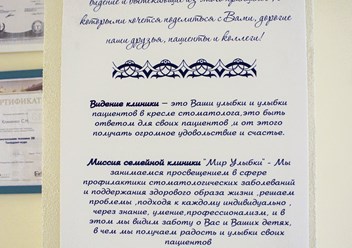 видение и вытекающие из этого принципы, с
которыми хочется поделиться с Вами, дорогие
наши друзья, пациенты и коллеги!
Видение клиники – это Ваши улыбки и улыбки
пациентов в кресле стоматолога,это быть
ответом для своих пациентов и от этого
получать огромное удовольствие и счастье.
Миссия семейной клиники "Мир Улыбки" - Мы
занимаемся просвещением в сфере
профилактики стоматологических заболеваний
и поддержания здорового образа жизни ,решаем
проблемы ,подходя к каждому индивидуально ,
через знание, умение,профессионализм, и в
этом мы видим заботу о Вас и Ваших детях,
в чем мы получаем радость и улыбки своих
пациентов